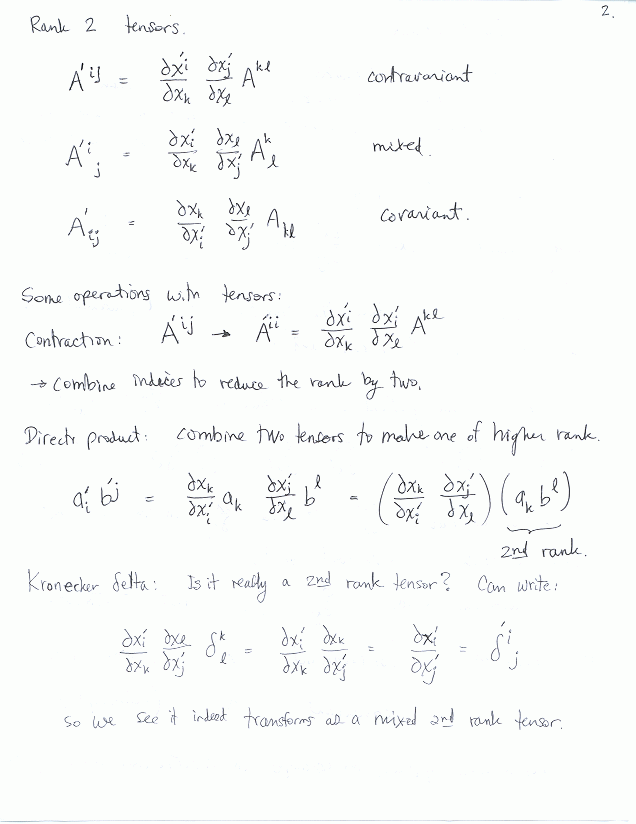 2.
Rank 2 tensors.
A'^{ij} = ∂x'_i/∂x_k ∂x'_j/∂x_l A^{kl} contravariant
A'^i_j = ∂x'_i/∂x_k ∂x_l/∂x'_j A^k_l mixed.
A'_{ij} = ∂x_k/∂x'_i ∂x_l/∂x'_j A_{kl} covariant.
Some operations with tensors:
Contraction: A'^{ij} → A'^{ii} = ∂x'_i/∂x_k ∂x'_i/∂x_l A^{kl}
→ combine indeces to reduce the rank by two.
Direct product: combine two tensors to make one of higher rank.
a'_i b'^j = ∂x_k/∂x'_i a_k ∂x'_j/∂x_l b^l = (∂x_k/∂x'_i ∂x'_j/∂x_l) (a_k b^l)
2nd rank.
Kronecker delta: Is it really a 2nd rank tensor? Can write:
∂x'_i/∂x_k ∂x_l/∂x'_j δ^k_l = ∂x'_i/∂x_k ∂x_k/∂x'_j = ∂x'_i/∂x'_j = δ'^i_j
So we see it indeed transforms as a mixed 2nd rank tensor.